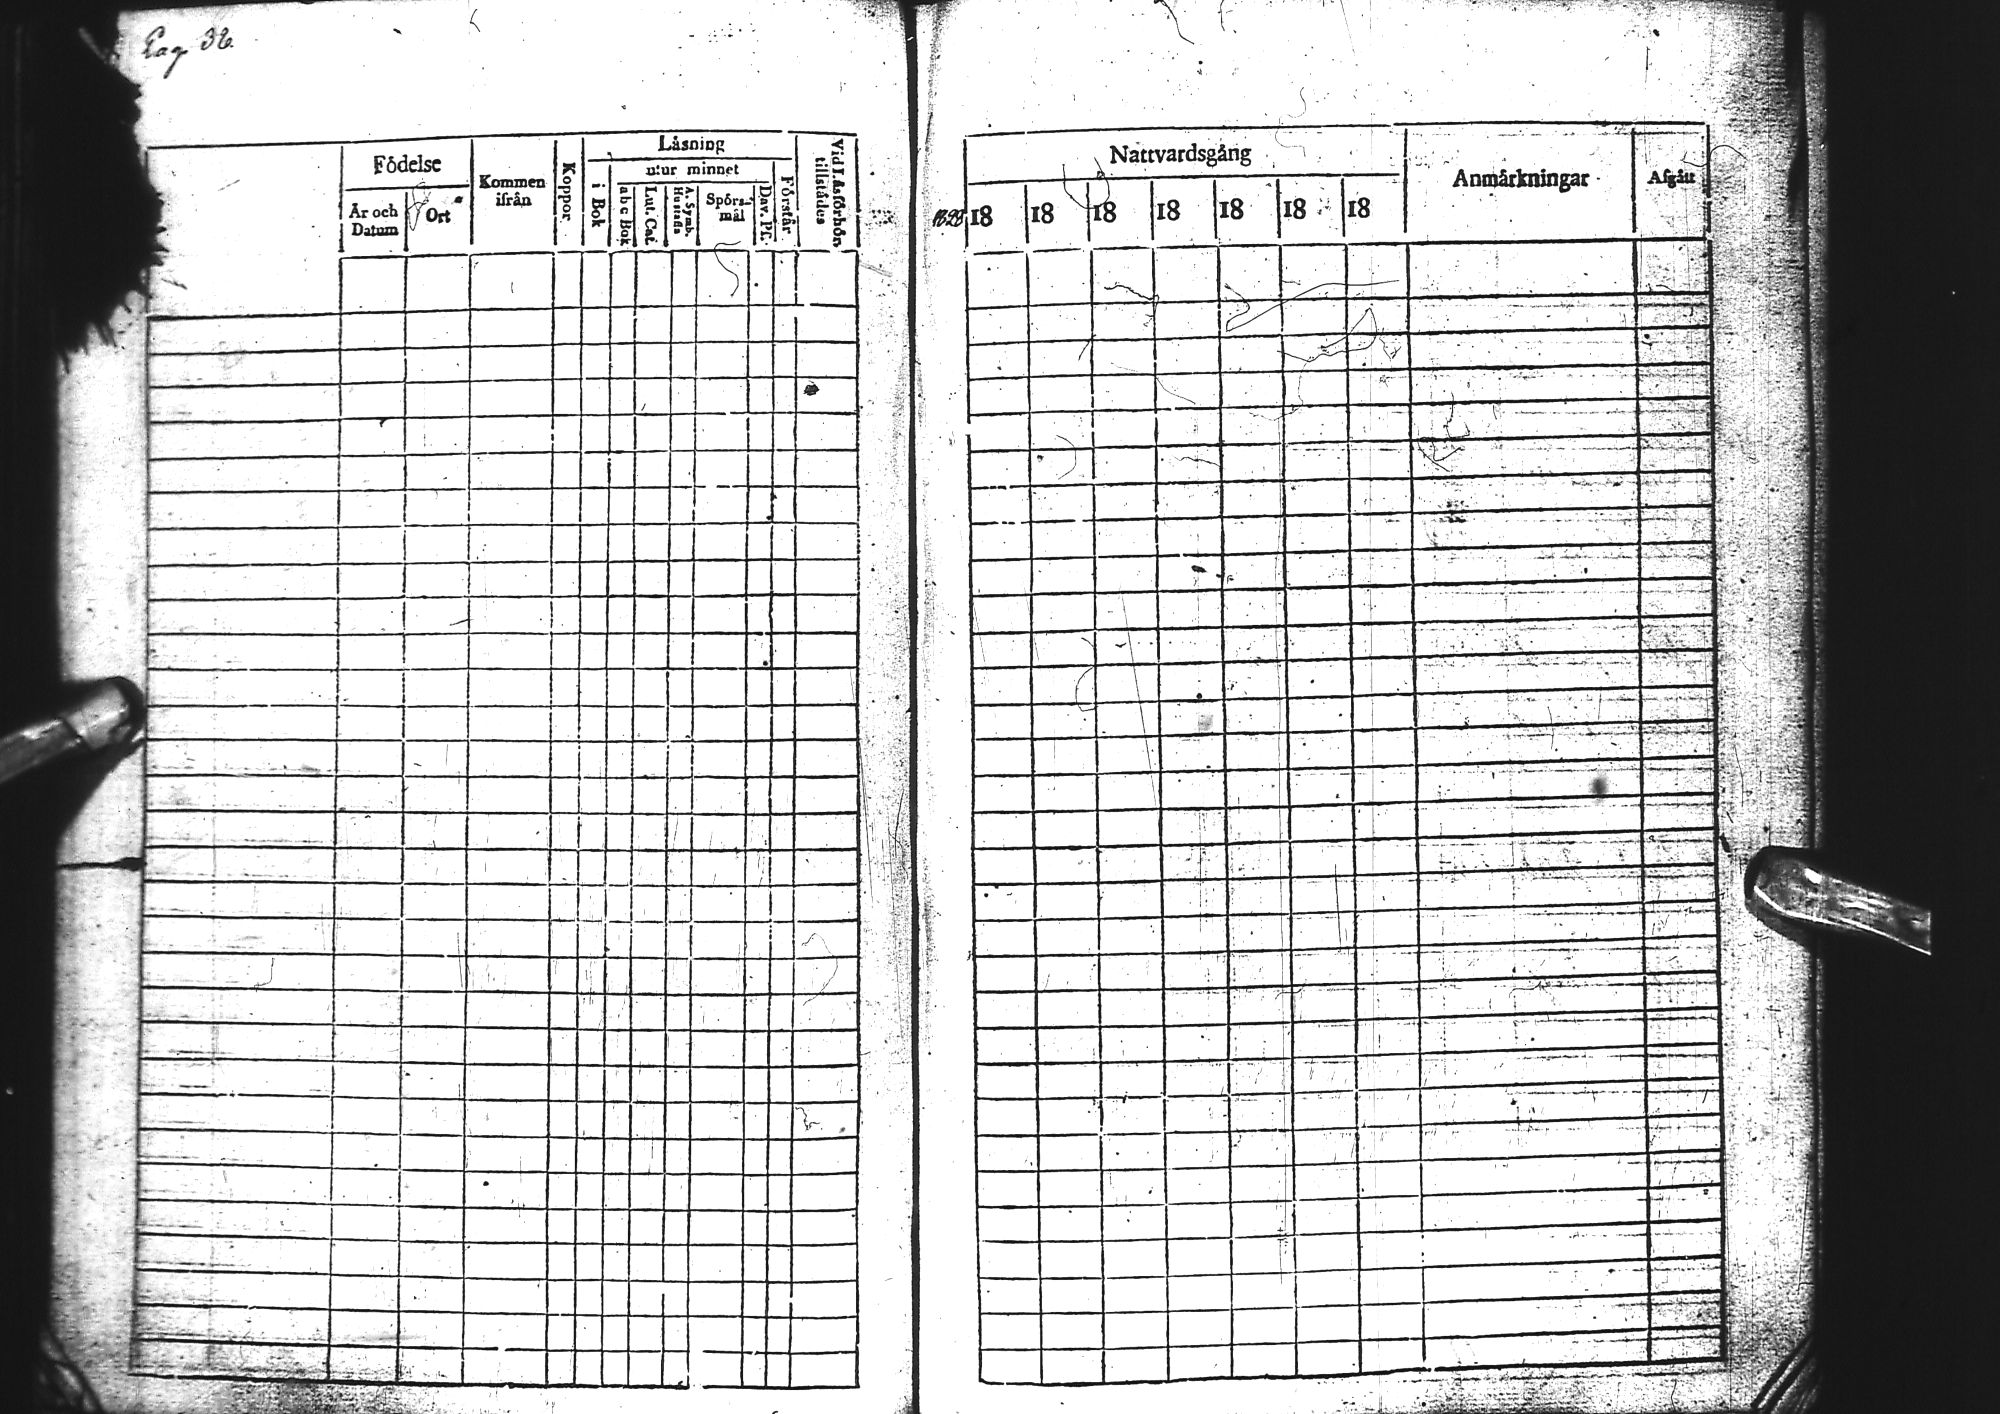 Pag. 38.
Födelse
Kommen ifrån
Koppor
Läsning
Vid Läsförhör tillstädes
utur minnet
i Bok
Förstår
År och Datum
Ort
a b c Bok
Lut. Cat.
A. Symb. Hustafla
Spörs-mål
Dav. Ps.
Nattvardsgång
Anmärkningar
Afgått
1828 18 18 18 18 18 18 18